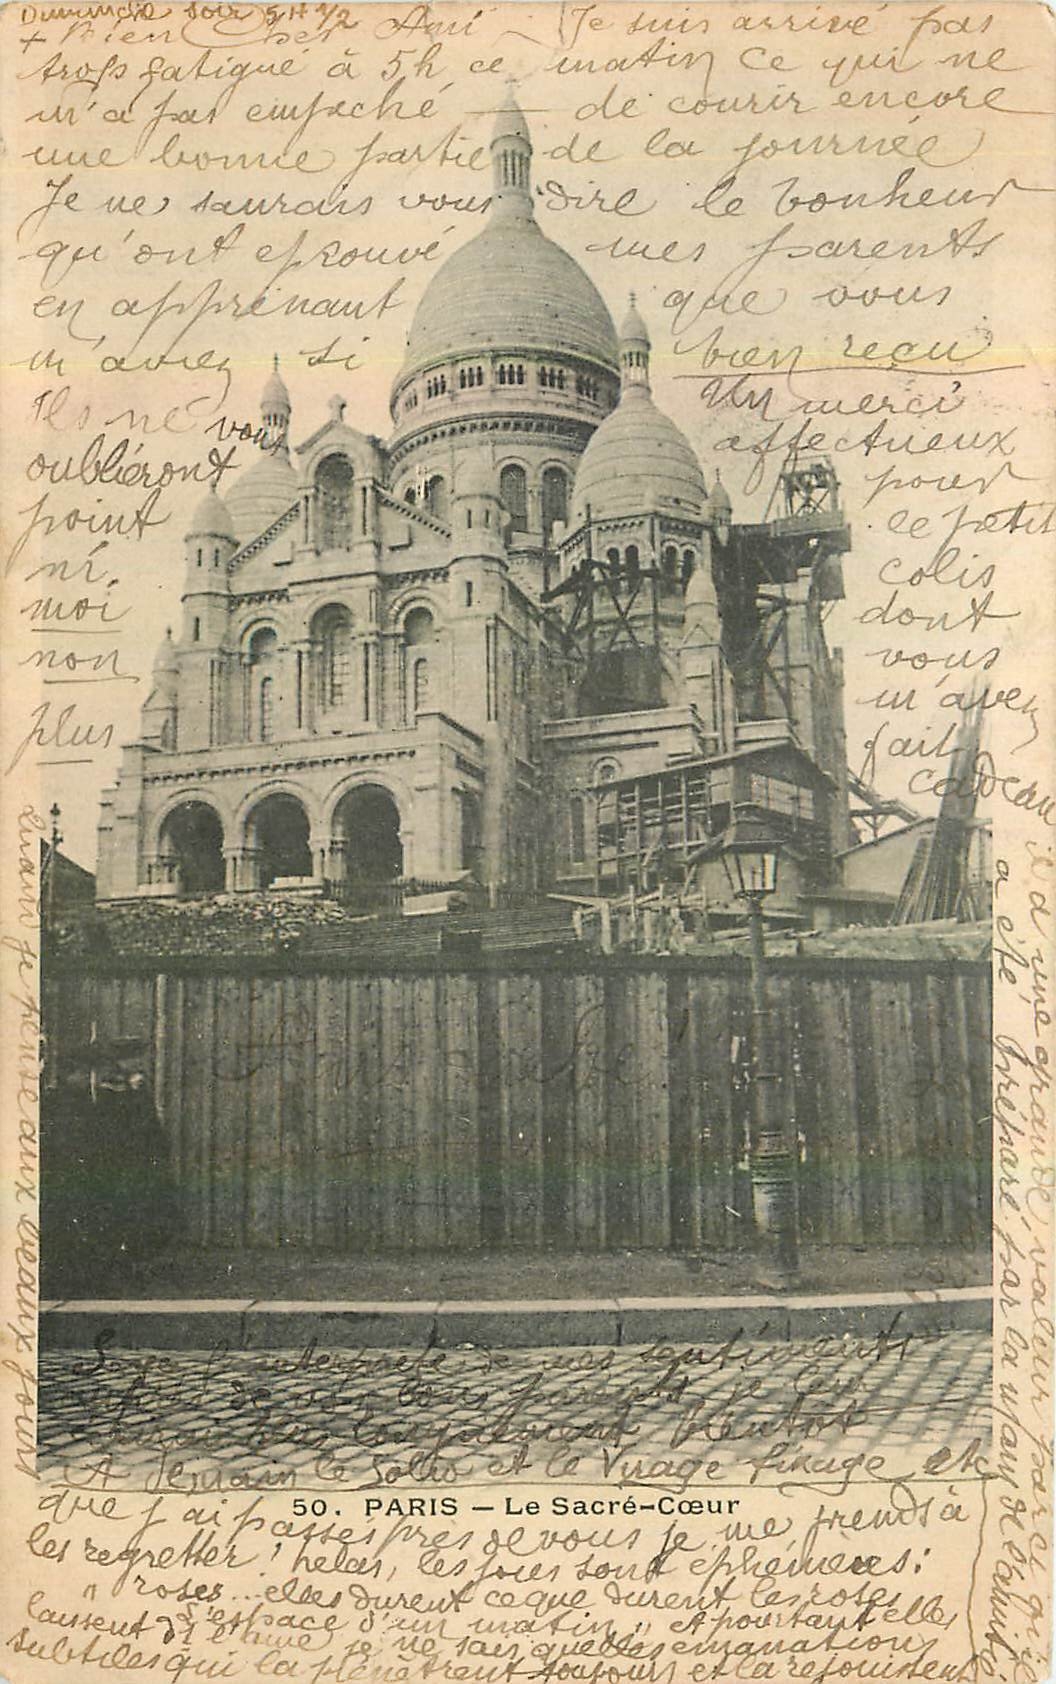 Dimanche soir 5H 1/2
+ Bien Cher Ami — Je suis arrivé pas
trop fatigué à 5h ce matin ce qui ne
m'a pas empêché — de courir encore —
une bonne partie de la journée
Je ne saurais vous dire le bonheur
qu'ont eprouvé mes parents
en apprenant que vous
m'aviez si bien reçu
Ils ne vous
oublieront
point
ni
moi
non
plus
Un merci
affectueux
pour
ce petit
colis
dont
vous
m'avez
fait
cadeau
il a une grande valeur parce qu'il
a été préparé par la main de l'amitié.
Soyez l'interprète de mes sentiments
de vos bons parents je leur
longuement bientôt
A demain le Solio et le Virage fixage etc
50. PARIS — Le Sacré-Cœur
Quand je pense aux beaux jours
que j'ai passés près de vous je me prends à
les regretter! helas, les jours sont éphémères:
" roses... elles durent ce que durent les roses
l'espace d'un matin " et pourtant elles
laissent à l'âme je ne sais quelles emanations
subtiles qui la pénètrent toujours et la rejouissent